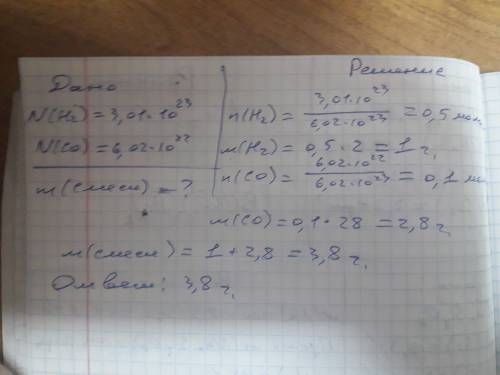 Дано
Решение
N(H₂) = 3,01·10²³
N(CO) = 6,02·10²²
m(смеси) - ?
n(H₂) = 3,01·10²³ / 6,02·10²³ = 0,5 мол
м(H₂) = 0,5·2 = 1 г.
n(CO) = 6,02·10²² / 6,02·10²³ = 0,1 мо
м(CO) = 0,1·28 = 2,8 г.
м(смеси) = 1 + 2,8 = 3,8 г.
Ответ: 3,8 г.